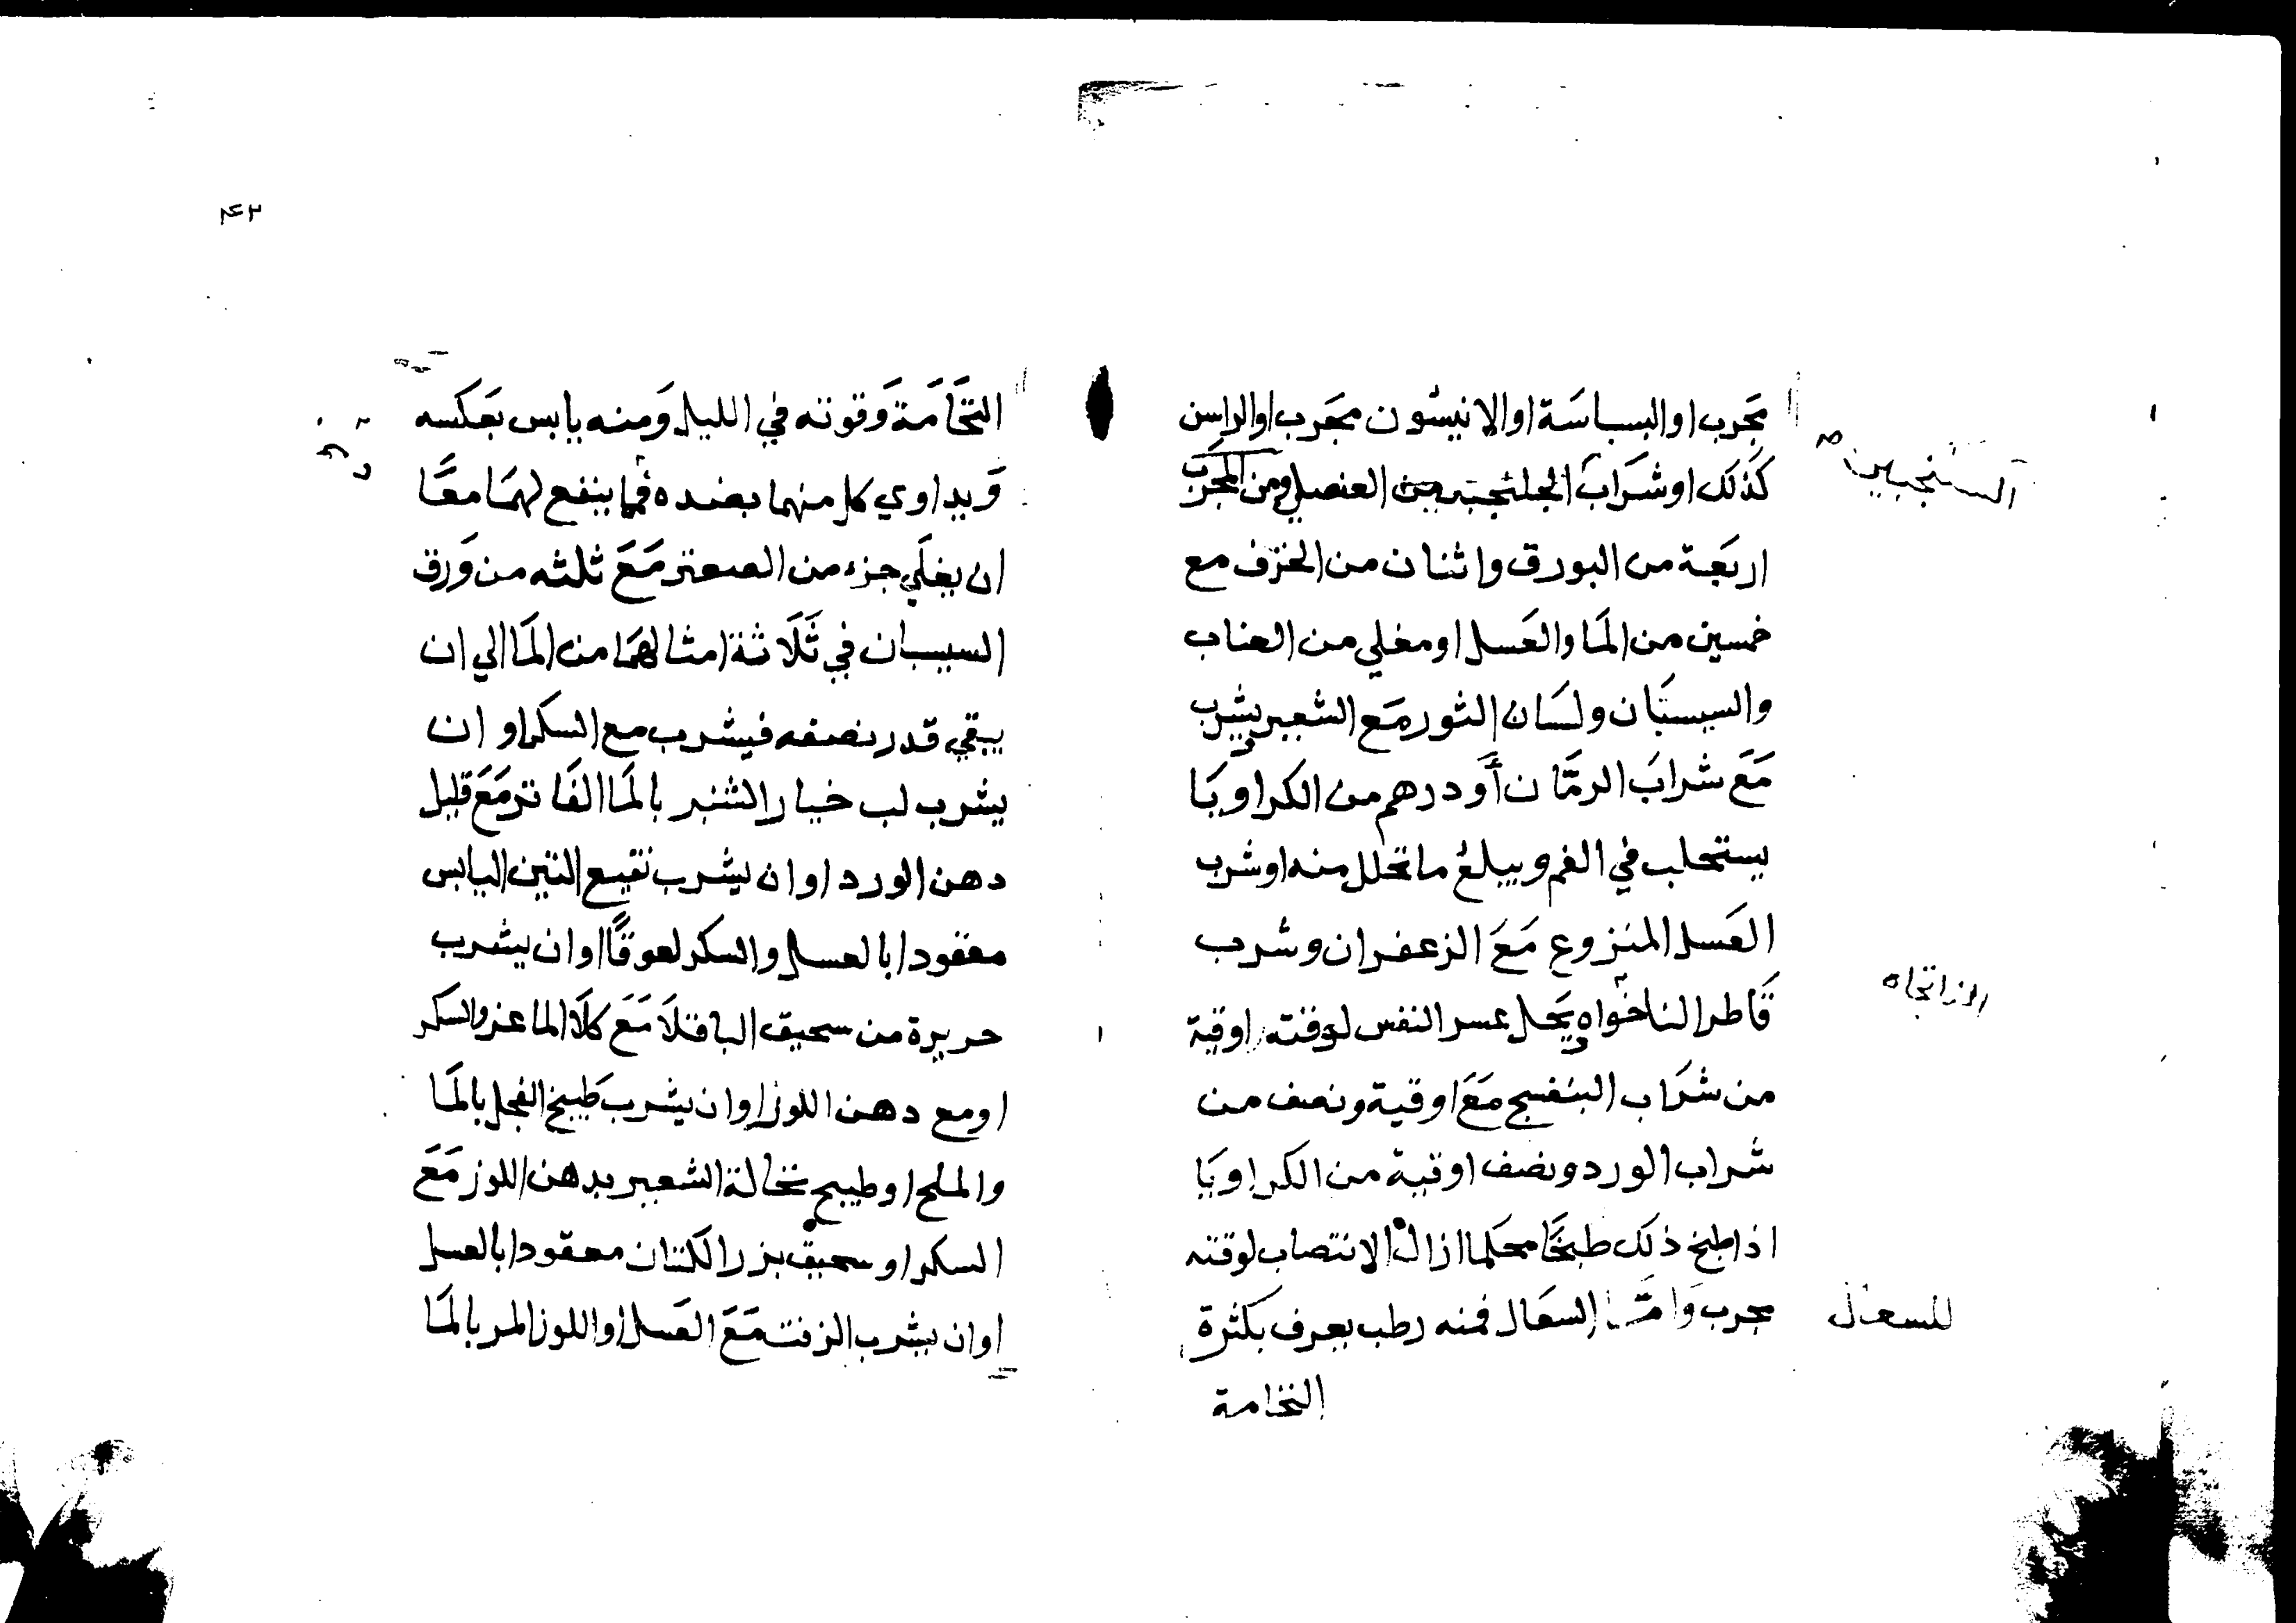 مجَرب او البسباسَة او الانيسُون مجَرب او الراسن
كذلك او شَراب الجلنجبين العنصلي ومن المجَرب
السنجبين
اربَعة من البورق واثنان من الخزَف مع
خمسين من المَا والعَسل او مغلي من العناب
والسبستَان ولسَان الثور مَع الشعير يشرب
مَعَ شرابَ الرمَّان أو درهم من الكراويَا
يستحلب في الفم ويبلع ما تحلل منه او شرب
العَسل المنزوع مَعَ الزعفران وشرب
قَاطر الناخَواه يَحل عسر النفس لوقته اوقية
من شرَاب البنفسج مَعَ اوقية ونصف من
شراب الورد ونصف اوقية من الكراويَا
اذا طبخ ذلك طبخًا محكما ازال الانتصاب لوقته
مجرب وَامَّا السعَال فمنه رطب يعرف بكثرة
للسعال
النخامة
٤٣
النخَامَة وَقوته في الليل وَمنه يابس بعَكسه
وَيداوي كل منهما بضده فمما ينفع لهمَا معًا
ان يغلَي جزء من الصعتر مَعَ ثلثه من وَرق
السيسبان في ثَلَاثة امثالهمَا من المَا الي ان
يبقي قدر نصفه فيشرب مع السكر او ان
يشرب لب خيار الشنبر بالمَا الفَاتر مَعَ قليل
دهن الورد او ان يشرب نقيع التين اليابس
معقودا بالعسل والسكر لعوقًا او ان يشرب
حريرة من سحيق الباقلَا مَعَ كلَا الماعز والسكر
او مع دهن اللوز او ان يشرب طَبيخ الفجل بالمَا
والملح او طبيخ نخالة الشعير بدهن اللوز مَعَ
السكر او سحيق بزر الكتان معقودا بالعسل
او ان يشرب الزفت مَعَ العَسل او اللوز المر بالمَا